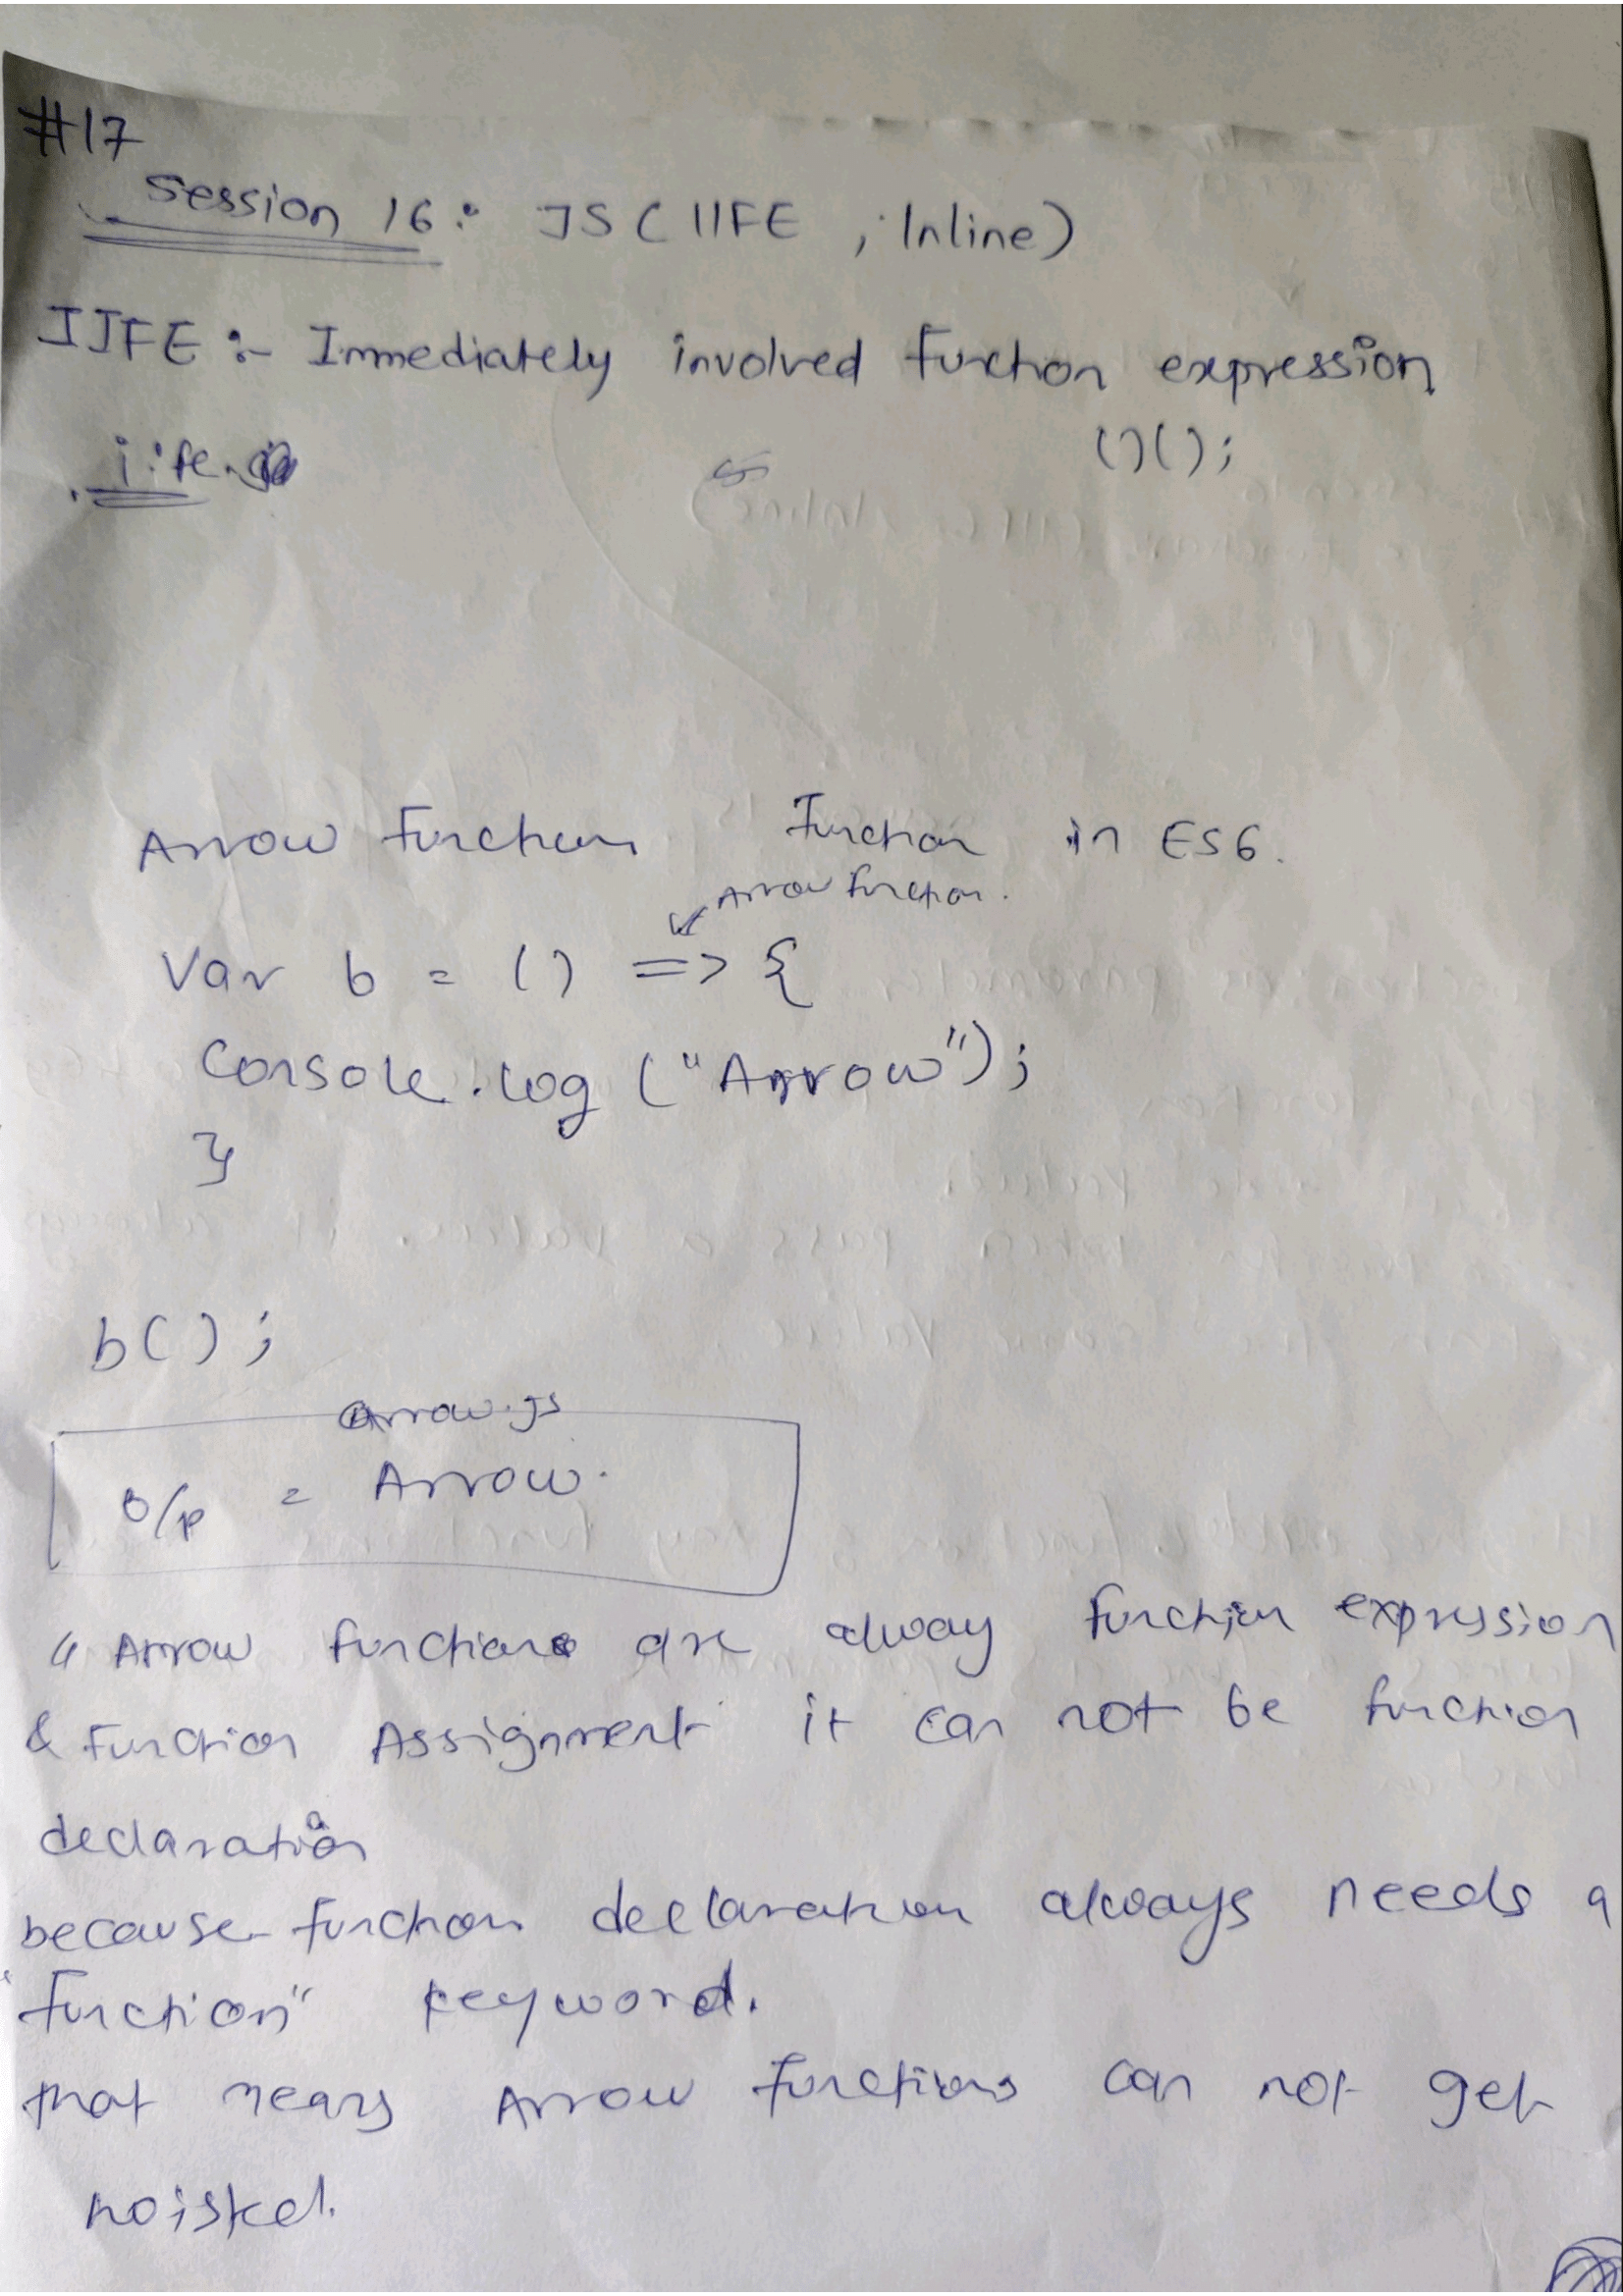 #17
Session 16: JS (IIFE, Inline)
IIFE :- Immediately involved function expression
()();
iife.
Arrow function Function in ES6.
Arrow function.
Var b = () => {
Console.log ("Arrow");
}
b();
Arrow.js
O/p = Arrow.
Arrow functions are alway function expression
& Function Assignment it can not be function
declaration
because function declaration always needs a
"function" keyword.
that means Arrow functions can not get
hoisted.